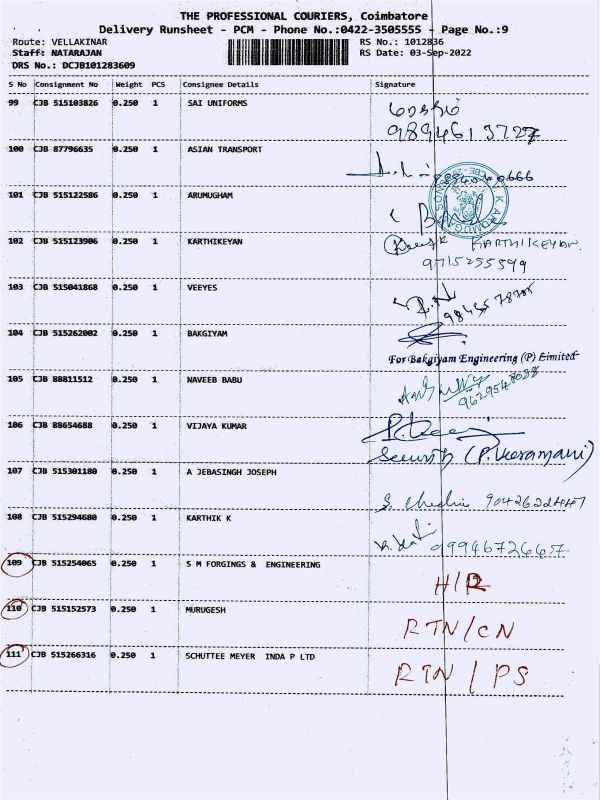 THE PROFESSIONAL COURIERS, Coimbatore
Delivery Runsheet - PCM - Phone No.:0422-3505555 - Page No.:9
Route: VELLAKINAR RS No.: 1012836
Staff: NATARAJAN RS Date: 03-Sep-2022
DRS No.: DCJB101283609
S No Consignment No Weight PCS Consignee Details Signature
99 CJB 515103826 0.250 1 SAI UNIFORMS
9894613727
100 CJB 87796635 0.250 1 ASIAN TRANSPORT
101 CJB 515122586 0.250 1 ARUMUGHAM
102 CJB 515123906 0.250 1 KARTHIKEYAN KARTHIKEYAN
9715255599
103 CJB 515041868 0.250 1 VEEYES
104 CJB 515262002 0.250 1 BAKGIYAM
For Bakgiyam Engineering (P) Limited
105 CJB 88811512 0.250 1 NAVEEB BABU
106 CJB 88654688 0.250 1 VIJAYA KUMAR
(P. Veeramani)
107 CJB 515301180 0.250 1 A JEBASINGH JOSEPH
108 CJB 515294680 0.250 1 KARTHIK K
109 CJB 515254065 0.250 1 S M FORGINGS & ENGINEERING
H/R
110 CJB 515152573 0.250 1 MURUGESH
RTN/CN
111 CJB 515266316 0.250 1 SCHUTTEE MEYER INDA P LTD
RTN / PS